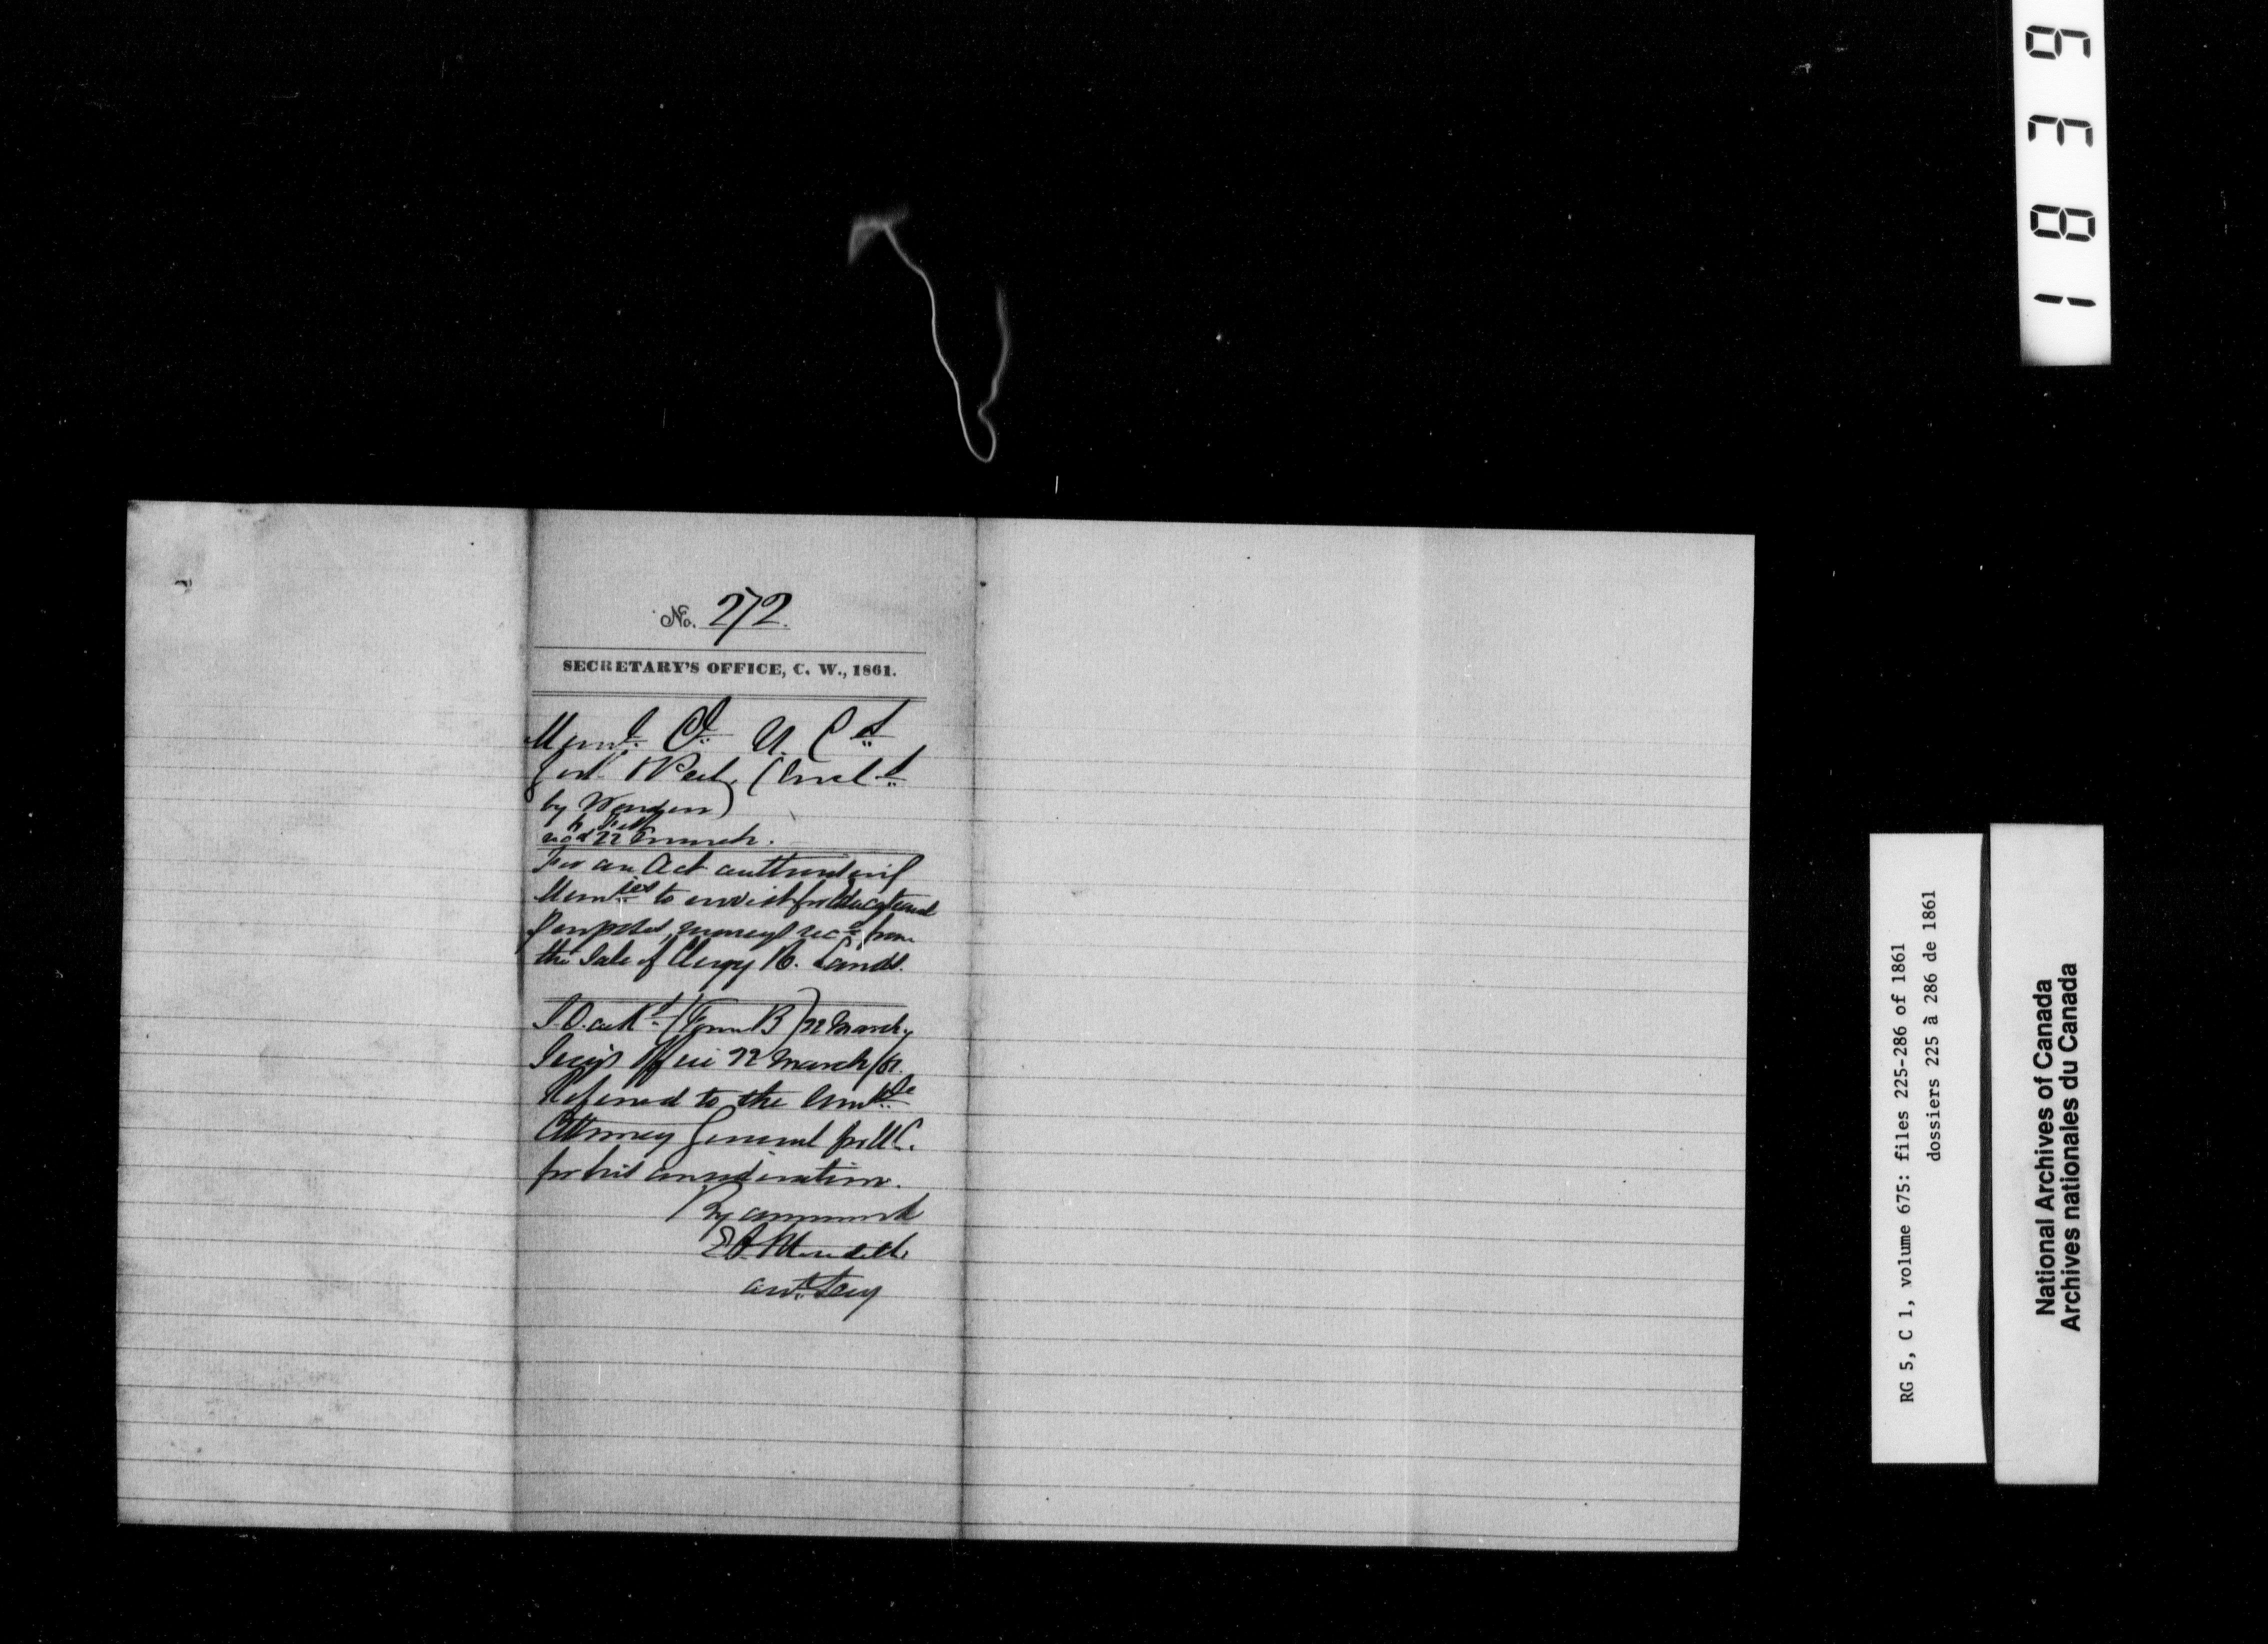 No. 272.
SECRETARY'S OFFICE, C. W., 1861.
Munl. Cl. U. C. &
by Warden)
recd 22 March.
For an Act authorizing
Munties to invest for Educational
Purposes, moneys recd from
the Sale of Clergy R. Lands.
Ackd (Form B) 22 March
Secy's Office 22 March/61.
Referred to the Honble
Attorney General for U.C.
for his consideration.
By command
E A Meredith
Asst. Secy
1839
RG 5, C 1, volume 675: files 225-286 of 1861
dossiers 225 à 286 de 1861
National Archives of Canada
Archives nationales du Canada